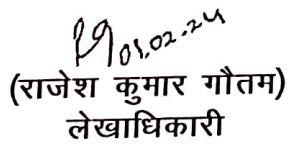 01.02.24
(राजेश कुमार गौतम)
लेखाधिकारी